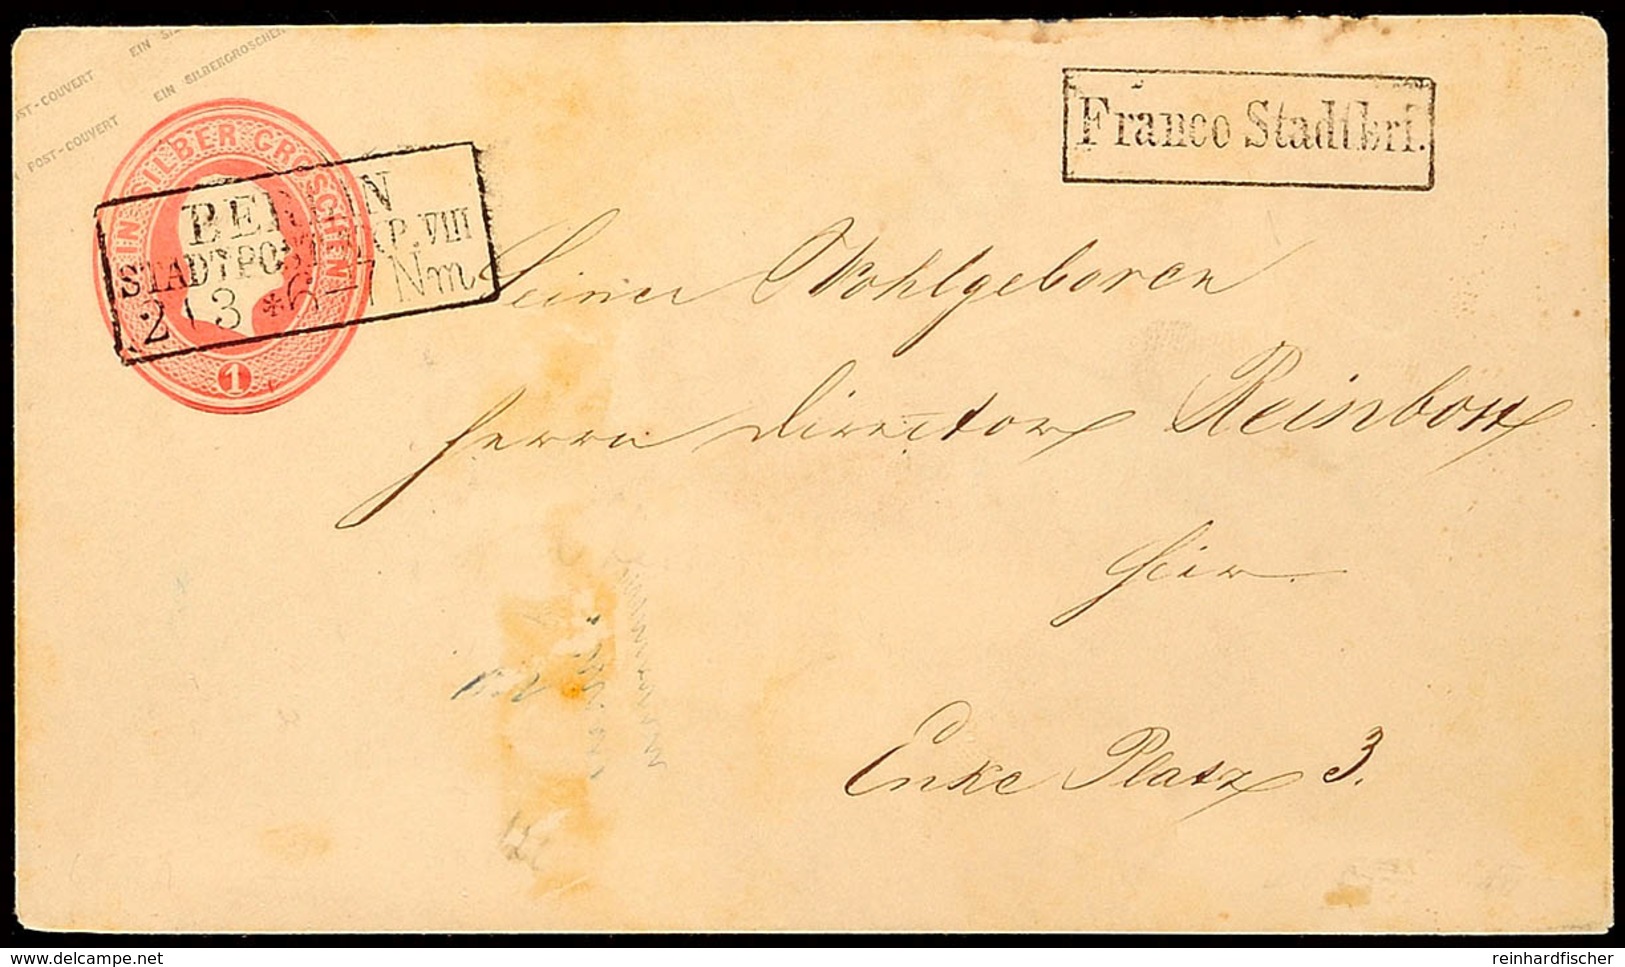 EIN SILBERGROSCHEN
POST-COUVERT
POST-COUVERT
EIN SILBER GROSCHEN
1
BERLIN
STADTPOST-EXP. VIII
2 | 3 * 6-7 Nm
Franco Stadtbrf.
Seiner Wohlgeboren
Herrn Director Reinbott
hier
Enke Platz 3.
www.delcampe.net
reinhardfischer